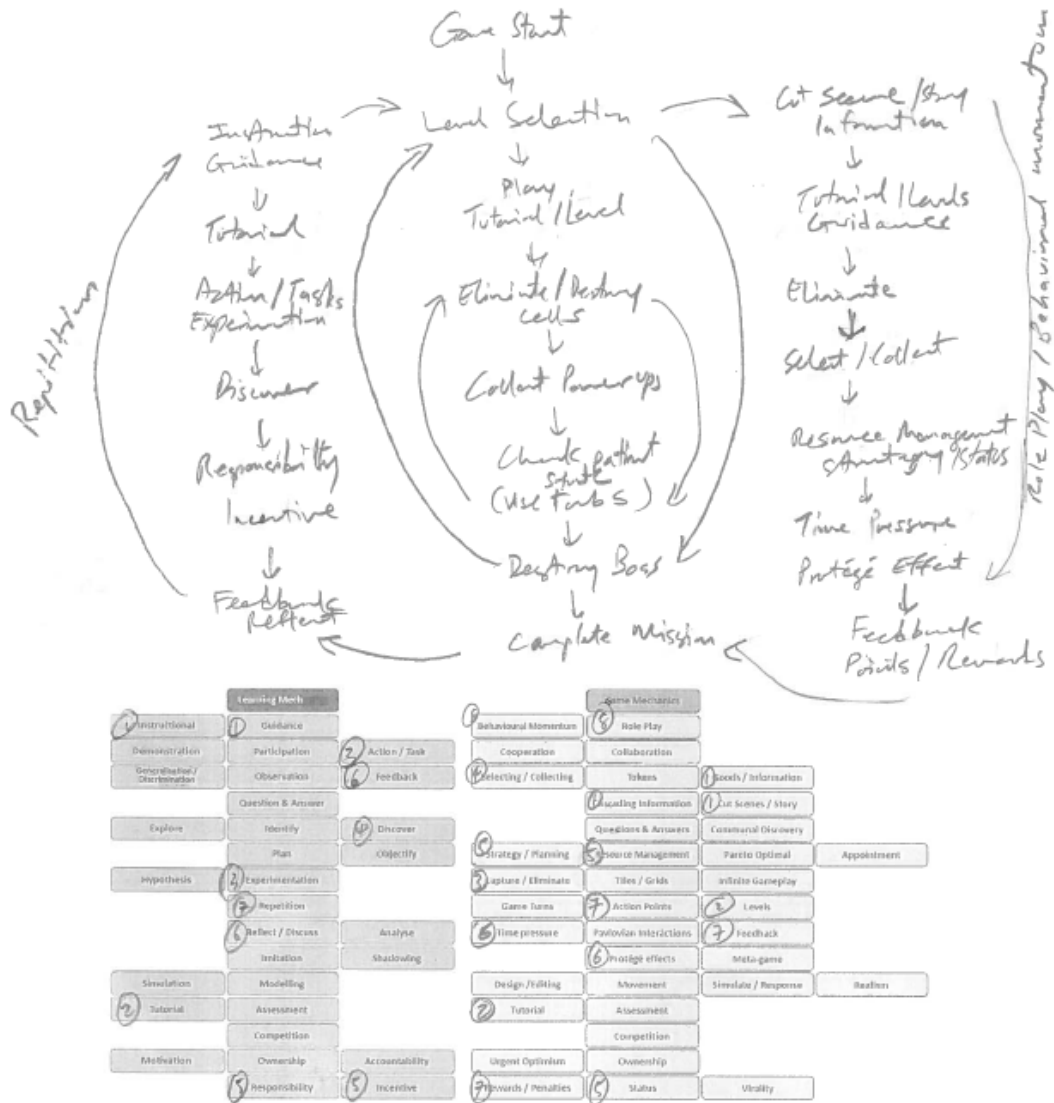 Game Start
Instruction
Guidance
Tutorial
Action / Tasks
Experimention
Discover
Responsibility
Incentive
Feedback
Reflect
Repititions
Level Selection
Play
Tutorial / Level
Eliminate / Destroy
cells
Collect Powerups
Check patient
state
(Use Tools)
Destroy Boss
Complete Mission
Cut Scene / Story
Information
Tutorial / Levels
Guidances
Eliminate
Select / Collect
Resource Management
Strategy / Status
Time Pressure
Protégé Effect
Feedback
Points / Rewards
Role Play / Behavioural momentum
Learning Mech
1 Instructional 1 Guidance
Demonstration Participation 2 Action / Task
Generalisation / Discrimination Observation 6 Feedback
Question & Answer
Explore Identify 4 Discover
Plan Objectify
Hypothesis 3 Experimentation
7 Repetition
6 Reflect / Discuss Analyse
Imitation Shadowing
Simulation Modelling
2 Tutorial Assessment
Competition
Motivation Ownership Accountability
5 Responsibility 5 Incentive
Game Mechanics
8 Behavioural Momentum 8 Role Play
Cooperation Collaboration
4 Selecting / Collecting Tokens 1 Goods / Information
1 Cascading Information 1 Cut Scenes / Story
Questions & Answers Communal Discovery
5 Strategy / Planning 5 Resource Management Pareto Optimal Appointment
3 Capture / Eliminate Tiles / Grids Infinite Gameplay
Game Turns 7 Action Points 2 Levels
6 Time pressure Pavlovian Interactions 7 Feedback
6 Protégé effects Meta-game
Design / Editing Movement Simulate / Response Realism
2 Tutorial Assessment
Competition
Urgent Optimism Ownership
7 Rewards / Penalties 5 Status Virality